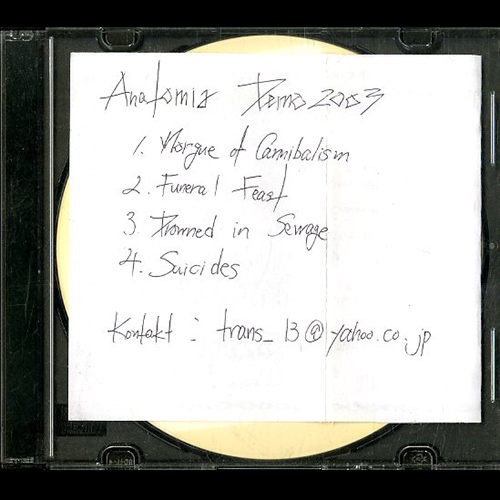 Anatomia Demo 2003
1. Morgue of Cannibalism
2. Funeral Feast
3. Drowned in Sewage
4. Suicides
Kontakt : trans_13@yahoo.co.jp